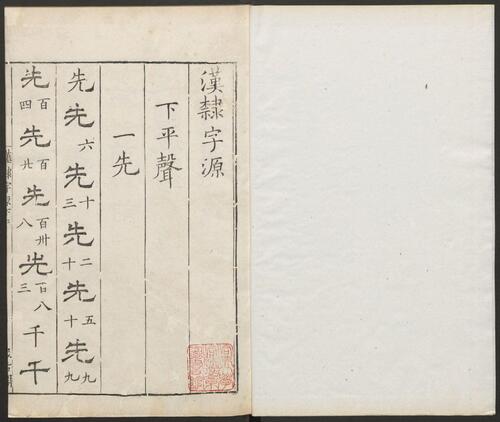 漢隸字源
下平聲
一先
先先六先十三先二十先五十先九九
先百四先百廿先百卅八先百八三千千